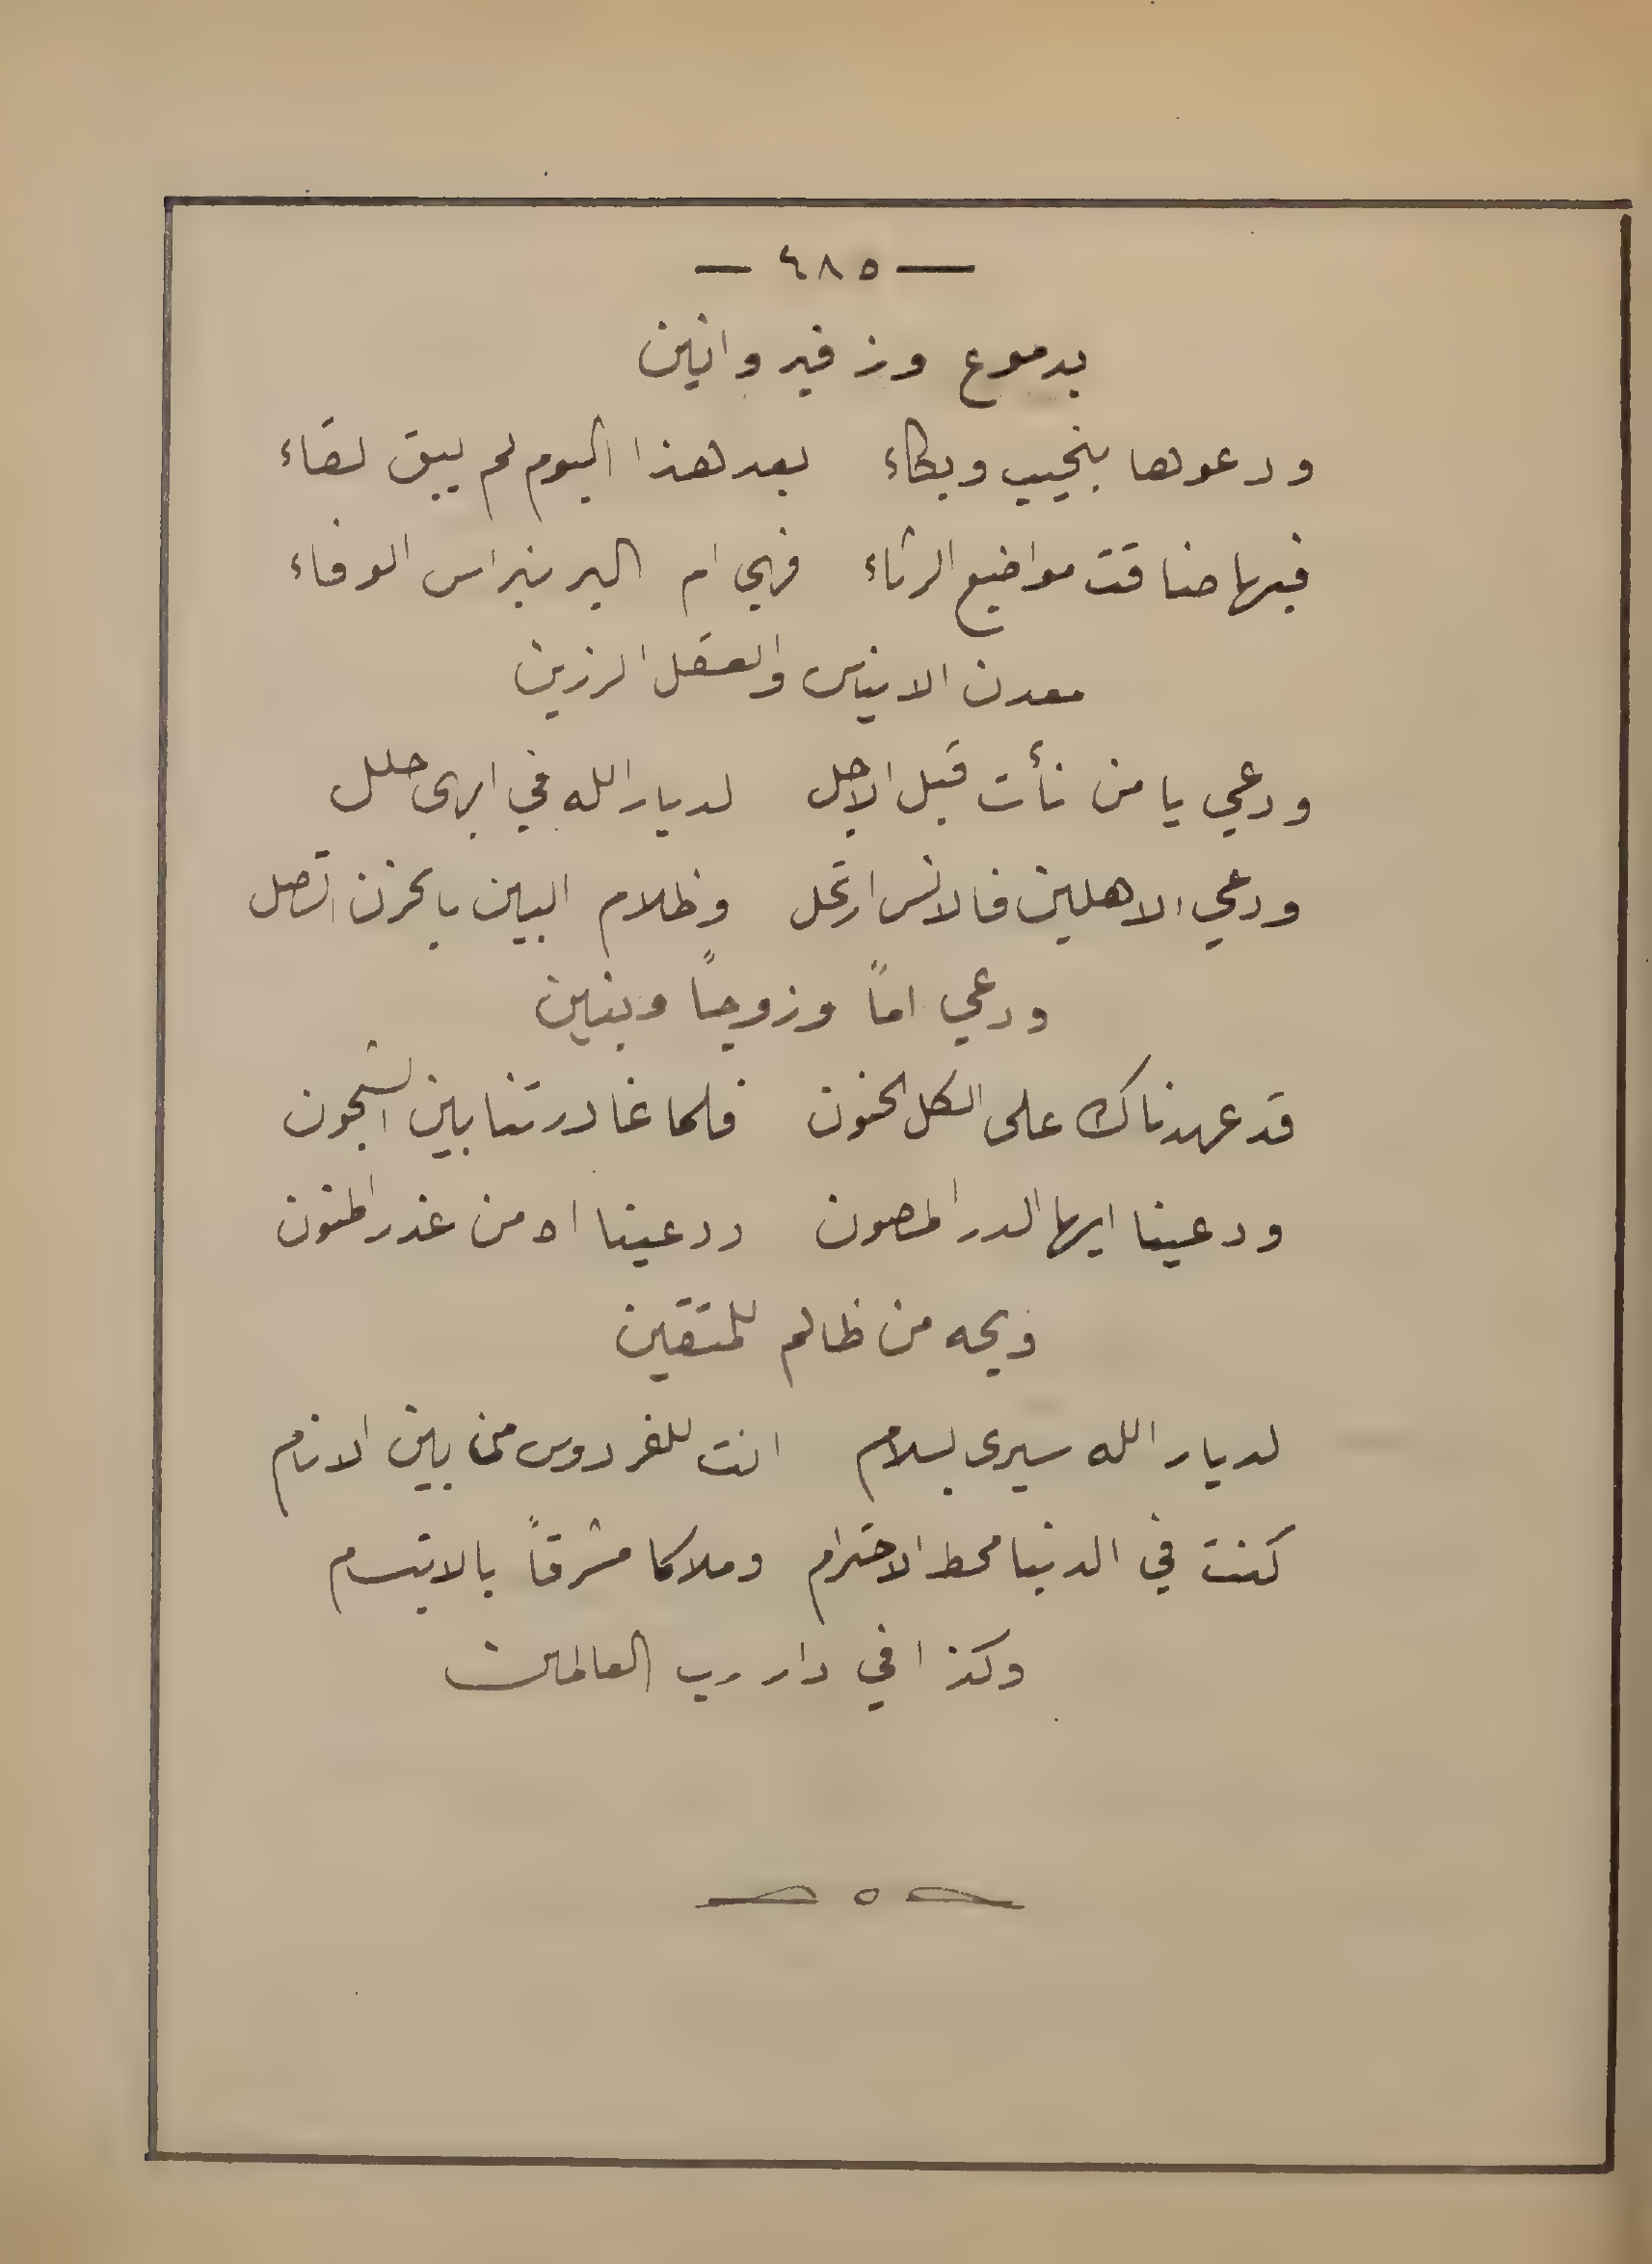 — ٤٨٥ —
بدموع وزفير وانين
ودعوها بنحيب وبكاء بعد هذا اليوم لم يبق لقاء
فيها ضاقت مواضيع الرثاء فهي ام البر نبراس الوفاء
معدن الايناس والعقل الرزين
ودعي يا من نأت قبل الاجل لديار الله في ابهى حلل
ودعي الاهلين فالانس ارتحل وظلام البين بالحزن اتصل
ودعي اماً وزوجاً وبنين
قد عهدناك على الكل الحنون فلما غادرتنا بين الشجون
ودعينا ايها الدر المصون ودعينا اه من غدر المنون
ويحه من ظالم للمتقين
لديار الله سيرى بسلام انت للفردوس من بين الانام
كنت في الدنيا محط الاحترام وملاكا مشرقاً بالابتسام
وكذا في دار رب العالمين